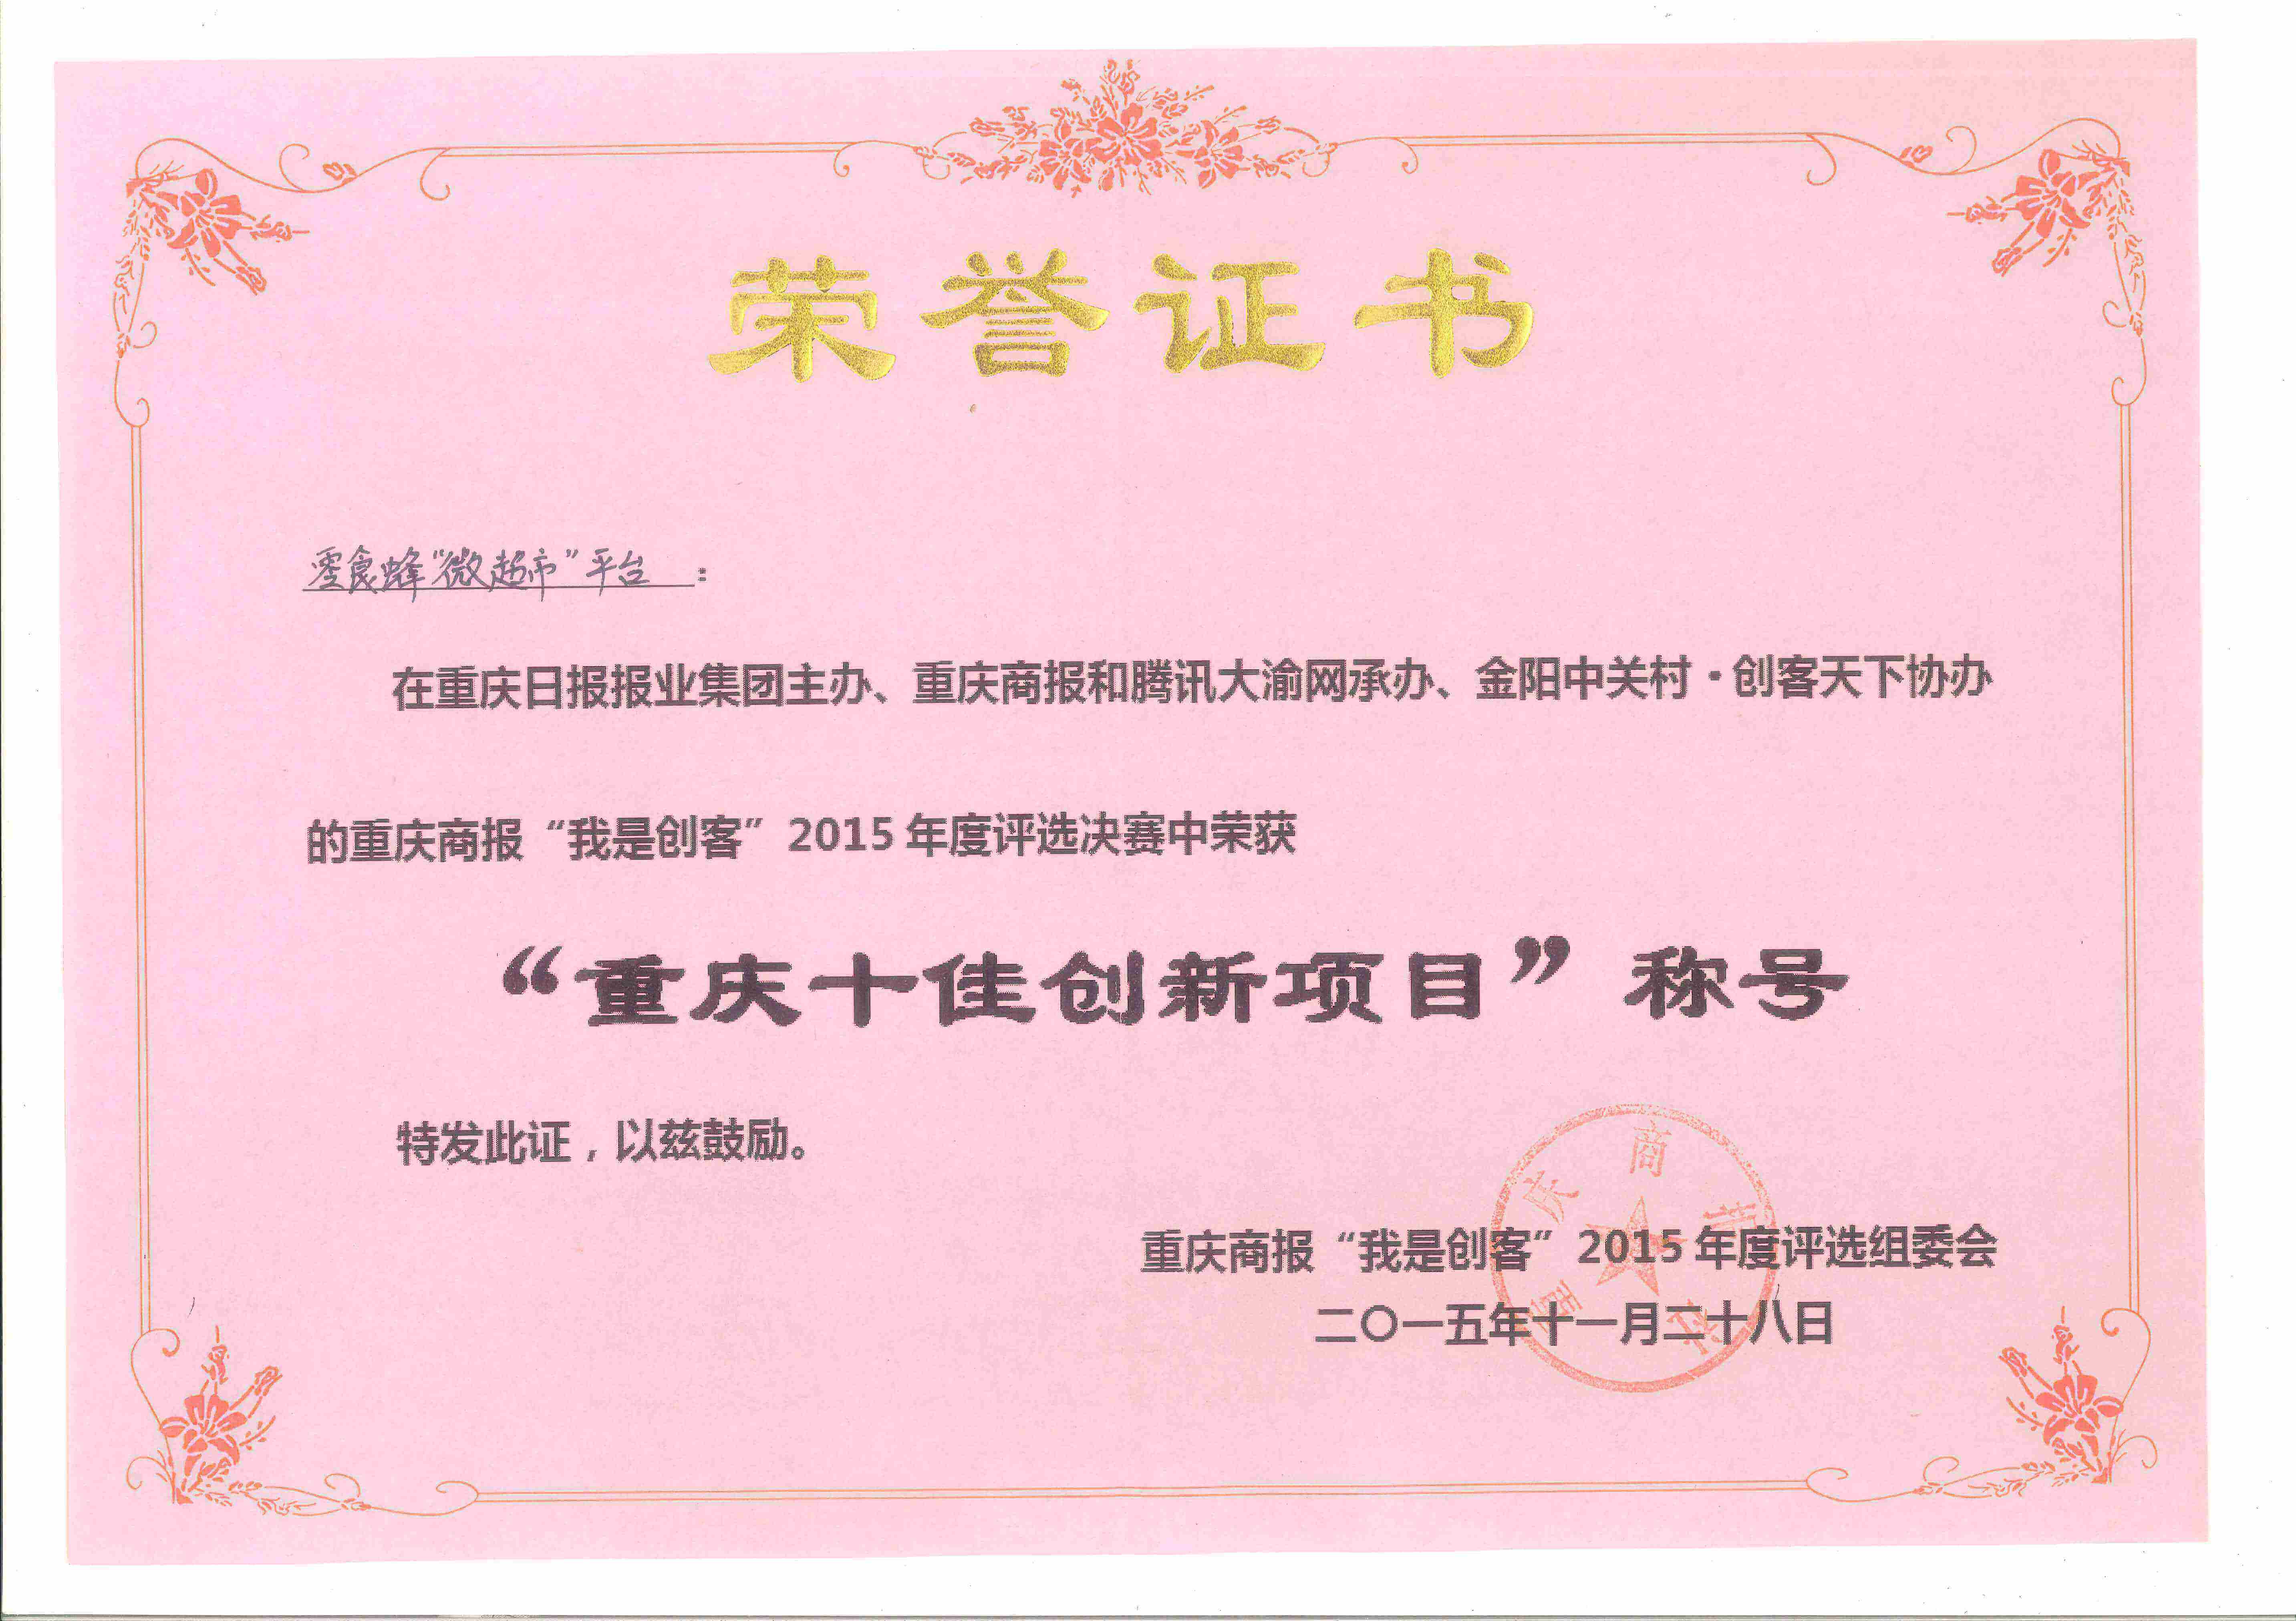 荣誉证书
零食蜂“微超市”平台：
在重庆日报报业集团主办、重庆商报和腾讯大渝网承办、金阳中关村·创客天下协办
的重庆商报“我是创客”2015年度评选决赛中荣获
“重庆十佳创新项目”称号
特发此证，以兹鼓励。
重庆商报社
重庆商报“我是创客”2015年度评选组委会
二〇一五年十一月二十八日